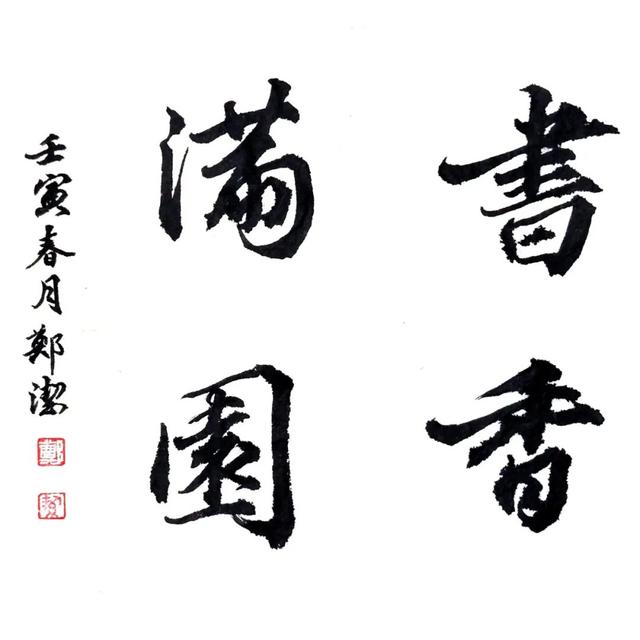 書香
滿園
壬寅春月鄭潔